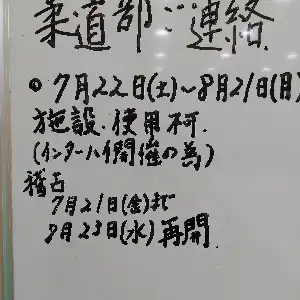 柔道部:連絡
○7月22日(土)~8月21日(月)
施設.使用不可.
(インターハイ開催の為)
稽古
7月21日(金)まで
8月23日(水)再開